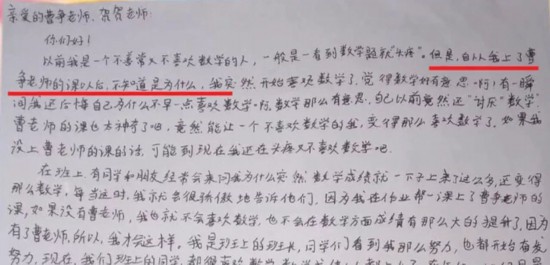 亲爱的曹争老师、贺贺老师:
你们好!
以前我是一个不喜欢又不喜欢数学的人,一般是一看到数学题就"头疼"。但是,自从我上了曹
争老师的课以后,不知道是为什么,我突然开始喜欢数学了,觉得数学好有意思啊!有一瞬
间我还后悔自己为什么不早一点喜欢数学啊,数学那么有意思,自己以前竟然还"讨厌"数学
曹老师的课也太神奇了吧,竟然能让一个不喜欢数学的我,变得那么喜欢数学了,如果我
没上曹老师的课的话,可能到现在我还在头疼又不喜欢数学吧。
在班上,有同学和朋友经常会来问我为什么突然数学成绩就一下子上来了这么多,还变得
那么数学,每当这时,我就会很骄傲地告诉他们,因为我在作业帮一课上了曹争老师的
课,如果没有曹老师,我也就不会喜欢数学,也不会在数学方面成绩有那么大的提升了,因为
有了曹老师,所以,我才会这样,我是班上的班长,同学们看到我那么努力,也都开始有发
努力,现在,我们班上的同学